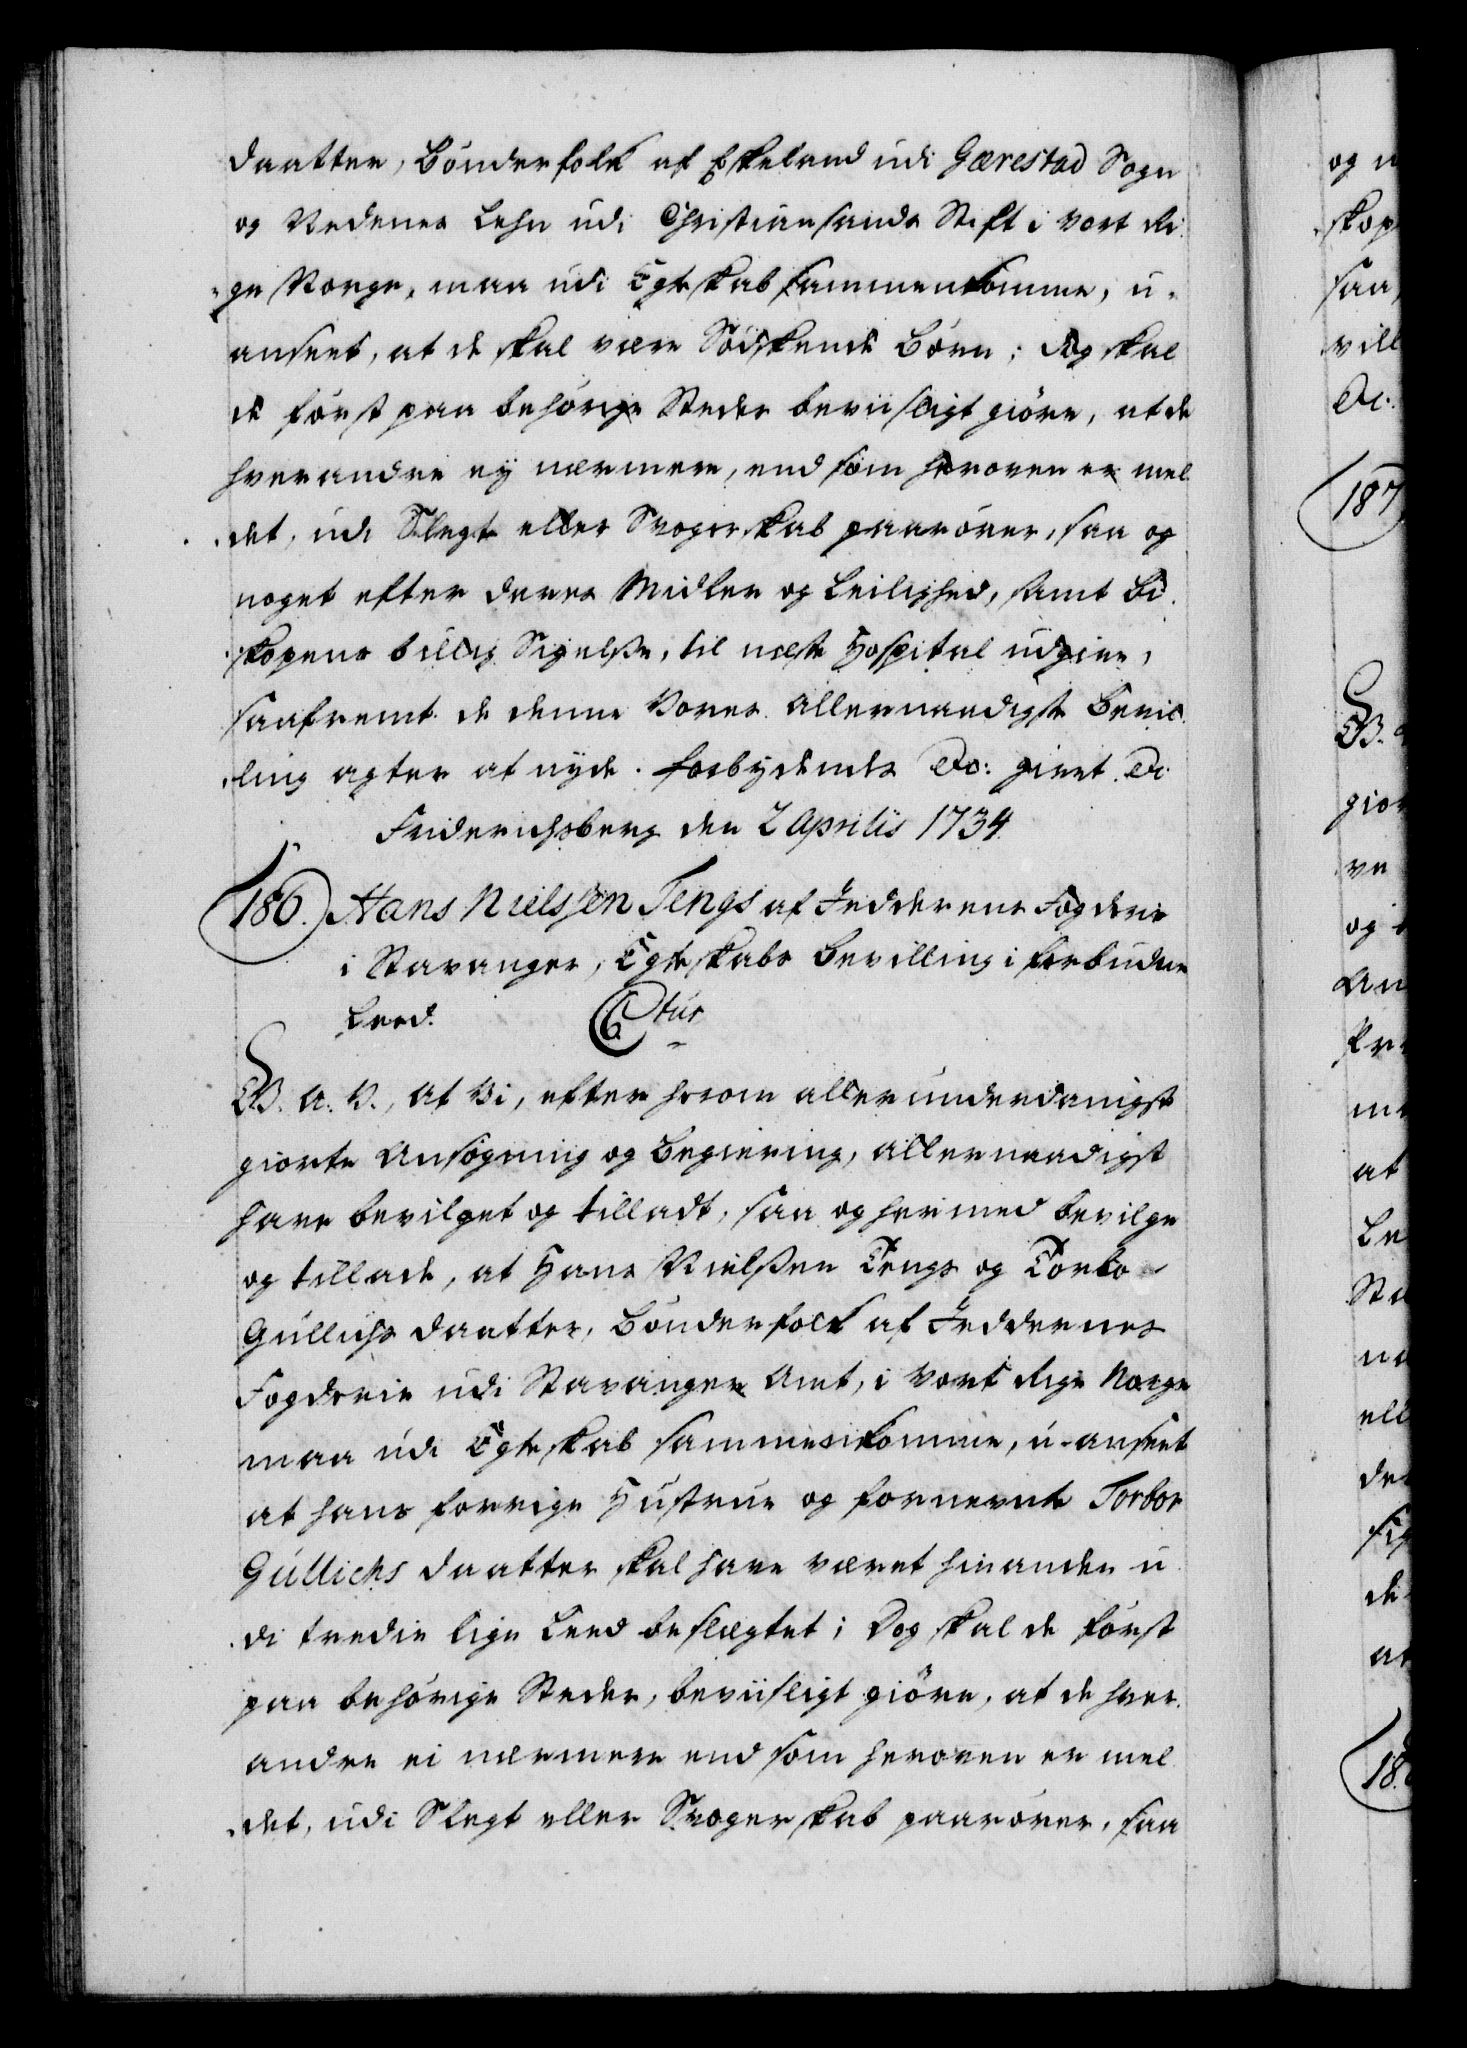 daatter, Bönderfolk af Eskeland udi Gærestad Sogn
og Nedenes Lehn udi Christiansands Stift i vort Ri-
ge Norge, maa udi Egteskab sammenkomme, u-
anseet, at de skal være Södskende Börn; dog skal
de først paa behörige Steder beviisligt giöre, at de
hverandre ey nærmere, end som heroven er mel-
det, udi Slegt eller Svogerskab paarörer, saa og
noget efter deres Midler og Leilighed, samt Bi-
skopens billig Sigelße, til næste Hospital udgive,
saafremt de denne Vores allernaadigste Bevil-
ling agter at nyde. Forbydendes &c: givet &c
Friderichsberg den 2 Aprilis 1734.
186. Hans Nielssen Tengs af Jedderens Fogderie
i Stavanger, Egteskabs Bevilling i forbudne
Leed. 6tus
G. A. V., at Vi, efter herom allerunderdanigst
giorte Ansögning og Begiering, allernaadigst
have bevilget og tilladt, saa og hermed bevilge
og tillade, at Hans Nielßen Tengs og Torbor
Gullichs daatter, Bönderfolk af Jeddernes
Fogderie udi Stavanger Amt, i vort Rige Norge
maa udi Egteskab sammenkomme, u-anseet
at hans forrige Hustrue og fornevnte Torbor
Gullichs daatter skal have været hinanden u-
di tredie lige Leed beslægtet; Dog skal de först
paa behörige Steder, beviisligt giöre, at de hver-
andre ei nærmere end som heroven er mel-
det, udi Slegt eller Svogerskab paarörer, saa
og
skop
saa
vill
&c.
187
G.
gior
ve
og
An
at
Le
Sta
na
ell
de
sig
de
at
18